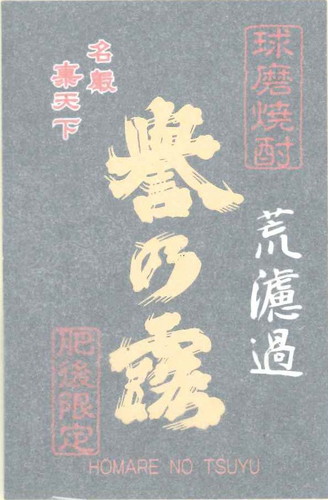 球磨焼酎
荒濾過
譽の露
名殿
裏天下
肥後限定
HOMARE NO TSUYU